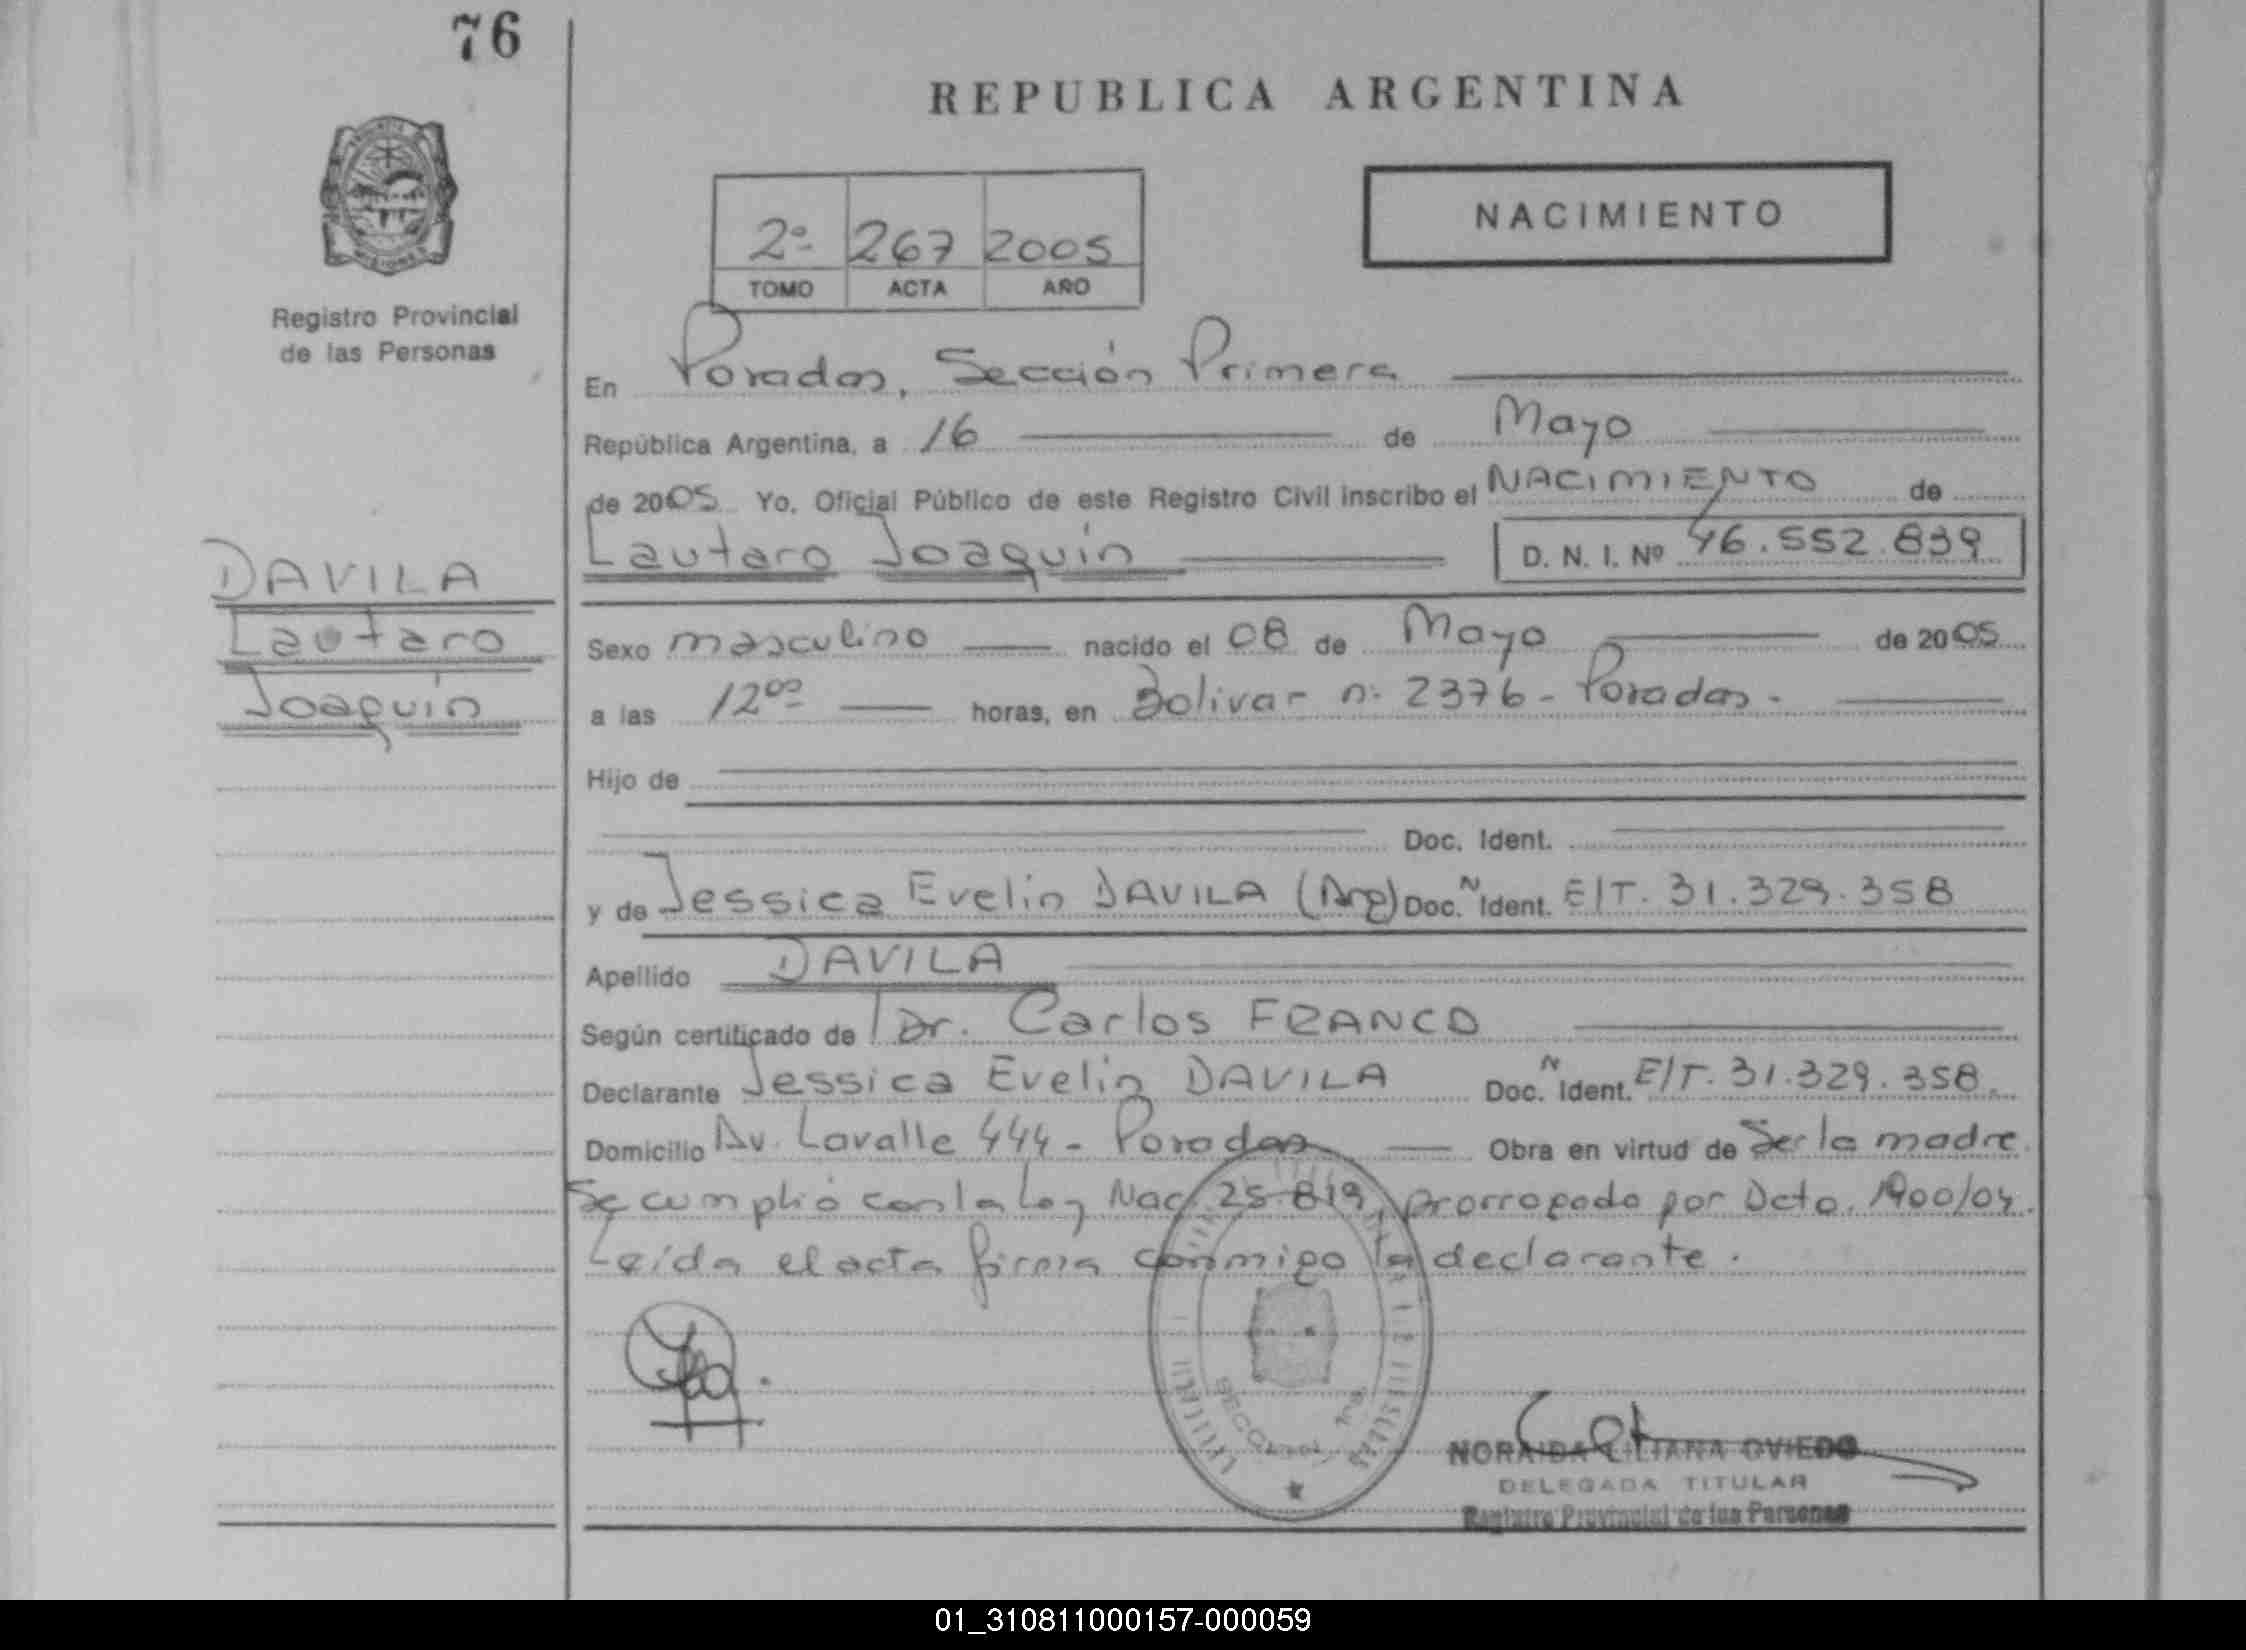 76
REPUBLICA ARGENTINA
NACIMIENTO
2º 267 2005
TOMO ACTA AÑO
Registro Provincial
de las Personas
En Posadas, Sección Primera
República Argentina, a 16 de Mayo
de 2005 Yo, Oficial Público de este Registro Civil inscribo el NACIMIENTO de
Lautaro Joaquín D. N. I. Nº 46.552.839
DAVILA
Lautaro
Joaquín
Sexo masculino nacido el 08 de Mayo de 2005
a las 12⁰⁰ horas, en Bolivar n: 2376 - Posadas.
Hijo de
Doc. Ident.
y de Jessica Evelin DAVILA (Arg) Doc. N Ident. E/T. 31.329.358
Apellido DAVILA
Según certificado de Dr. Carlos FRANCO
Declarante Jessica Evelin DAVILA Doc. N Ident. E/T. 31.329.358.
Domicilio Av. Lavalle 444 - Posadas Obra en virtud de Ser la madre.
Se cumplió con la Ley Nac. 25.819, prorrogado por Dcto. 1900/04.
Leída el acta firma conmigo la declarante.
SECCION 1ra
NORAIDA LILIANA OVIEDO
DELEGADA TITULAR
Registro Provincial de las Personas
01_310811000157-000059